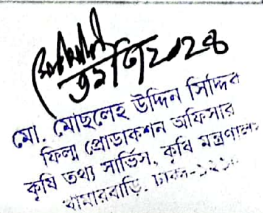 মো. মোছলেহ উদ্দিন সিদ্দিক
ফিল্ম প্রোডাকশন অফিসার
কৃষি তথ্য সার্ভিস, কৃষি মন্ত্রণালয়
খামারবাড়ি, ঢাকা-১২১৫